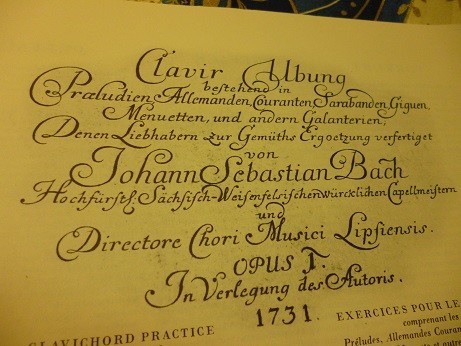 Clavir Ubung
bestehend in
Præludien, Allemanden, Couranten, Sarabanden, Giguen,
Menuetten, und andern Galanterien,
Denen Liebhabern zur Gemüths Ergoetzung verfertiget
von
Johann Sebastian Bach
Hochfürstl: Sächsisch-Weisenfelsischen würcklichen Capellmeistern
und
Directore Chori Musici Lipsiensis.
OPUS I.
In Verlegung des Autoris.
1731.
CLAVICHORD PRACTICE
EXERCICES POUR LE
comprenant les
Préludes, Allemandes Couran
et autre